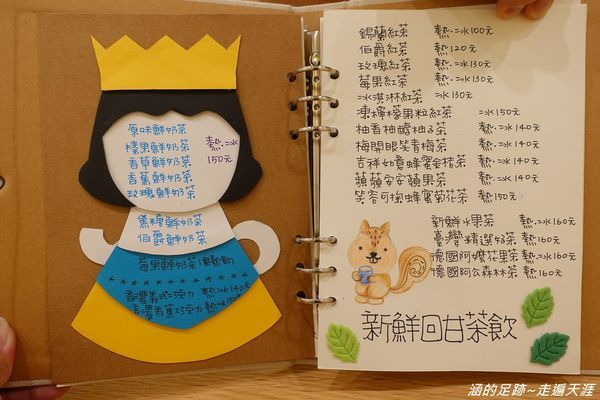 原味鮮奶茶
榛果鮮奶茶 熱.冰
香草鮮奶茶 150元
香蕉鮮奶茶
玫瑰鮮奶茶
黑糖鮮奶茶
伯爵鮮奶茶
莓果鮮奶茶(無熱飲)
香濃義式巧克力 熱.冰140元
香濃香蕉巧克力 熱.冰150元
錫蘭紅茶 熱.冰100元
伯爵紅茶 熱120元
玫瑰紅茶 熱.冰130元
莓果紅茶 熱.冰130元
冰淇淋紅茶 冰130元
凍檸檬果粒紅茶 冰150元
柚香柚戀柚子茶 熱.冰140元
梅開眼笑青梅茶 熱.冰140元
吉祥如意蜂蜜金桔茶 熱.冰140元
蘋蘋安安蘋果茶 熱.冰140元
笑容可掬蜂蜜菊花茶 熱150元
新鮮水果茶 熱.冰160元
臺灣精選好茶 熱160元
德國阿嬤花果茶 熱.冰160元
德國阿公森林茶 熱160元
新鮮回甘茶飲
涵的足跡~走遍天涯